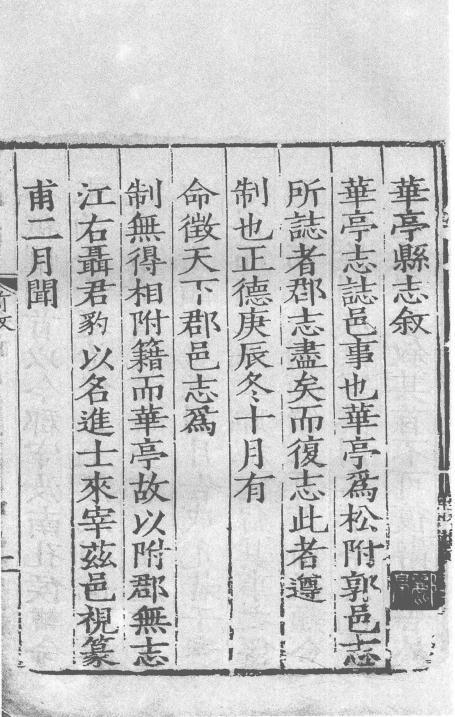 華亭縣志叙
華亭志誌邑事也華亭爲松附郭邑志
所誌者郡志盡矣而復志此者遵
制也正德庚辰冬十月有
命徵天下郡邑志爲
制無得相附籍而華亭故以附郡無志
江右聶君豹以名進士來宰茲邑視篆
甫二月聞